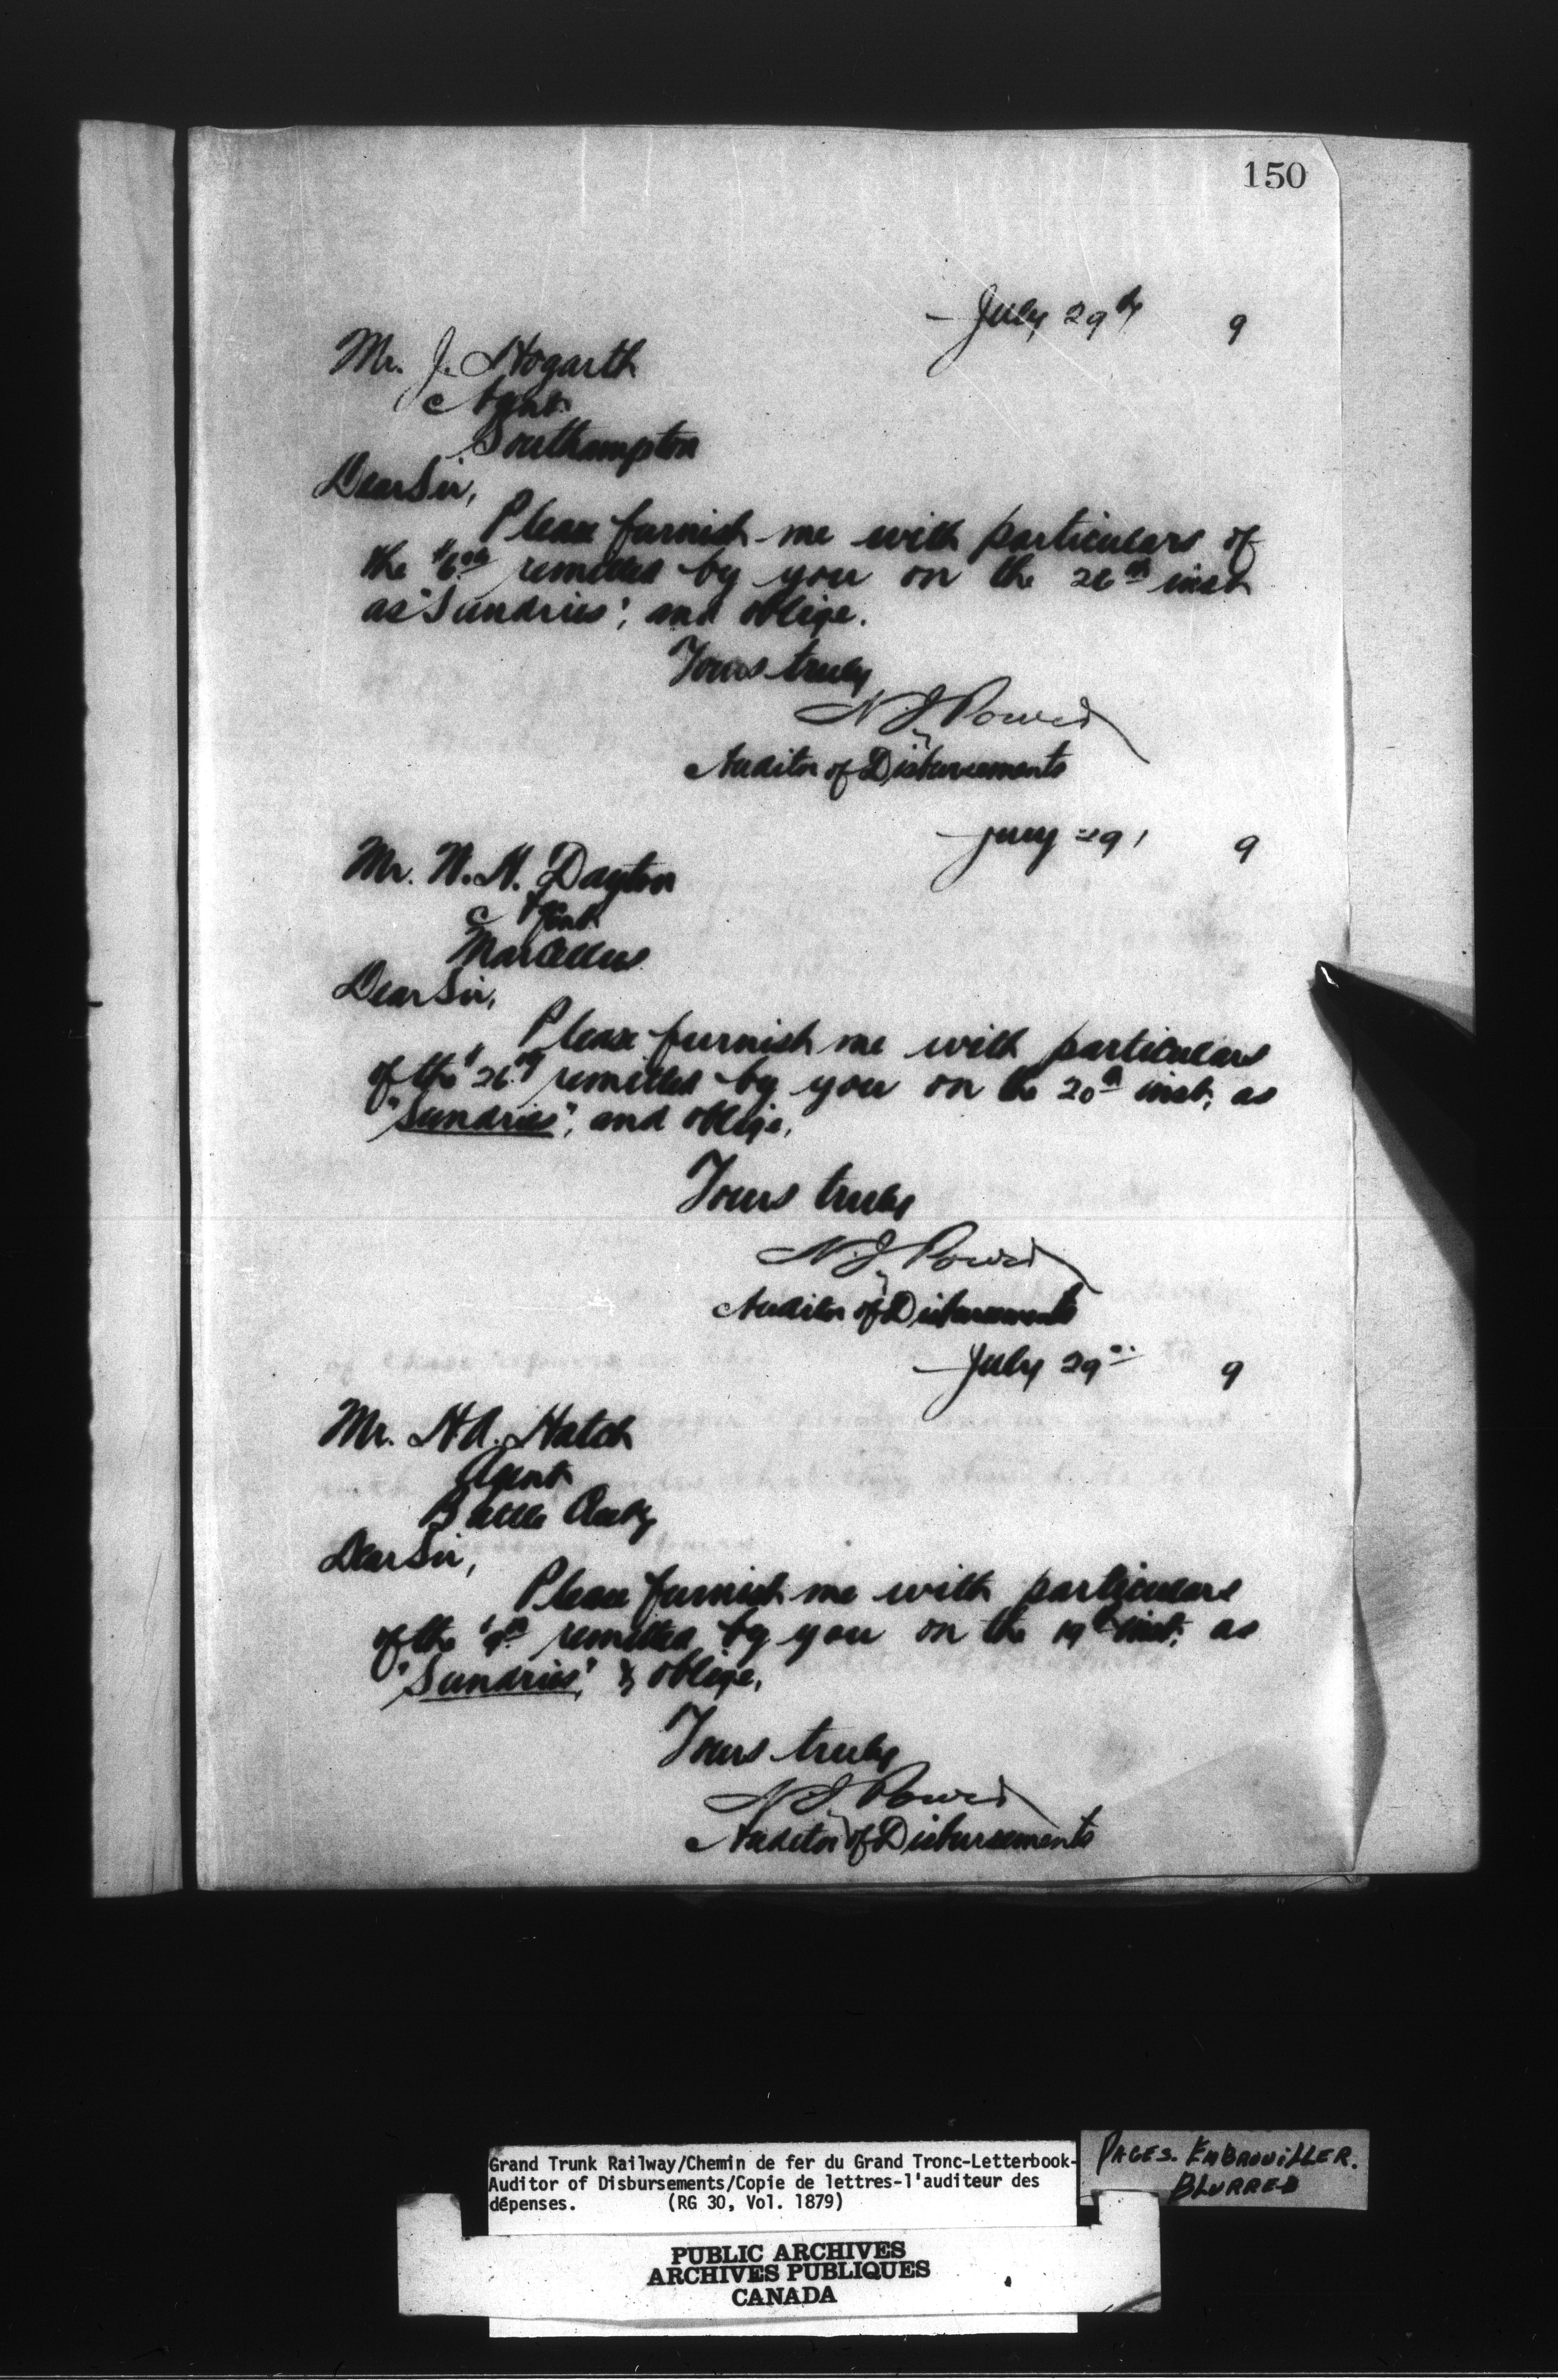 150
July 29th 9
Mr. J. Hogarth
Agent
Southampton
Dear Sir,
Please furnish me with particulars of
the remitted by you on the 26th inst
as "Sundries", and oblige.
Yours truly
N. J. Power
Auditor of Disbursements
July 29 9
Mr. N. H. Dayton
Agent
Marcellus
Dear Sir,
Please furnish me with particulars
of the remitted by you on the 20th inst, as
"Sundries", and oblige,
Yours truly
N. J. Power
Auditor of Disbursements
July 29 9
Mr. H A. Hatch
Agent
Battle
Dear Sir,
Please furnish me with particulars
of the remitted by you on the 19th inst, as
"Sundries", & oblige,
Yours truly
N. J. Power
Auditor of Disbursements
Grand Trunk Railway/Chemin de fer du Grand Tronc-Letterbook-
Auditor of Disbursements/Copie de lettres-l'auditeur des
dépenses. (RG 30, Vol. 1879)
PAGES. EMBROUILLER.
BLURRED
PUBLIC ARCHIVES
ARCHIVES PUBLIQUES
CANADA